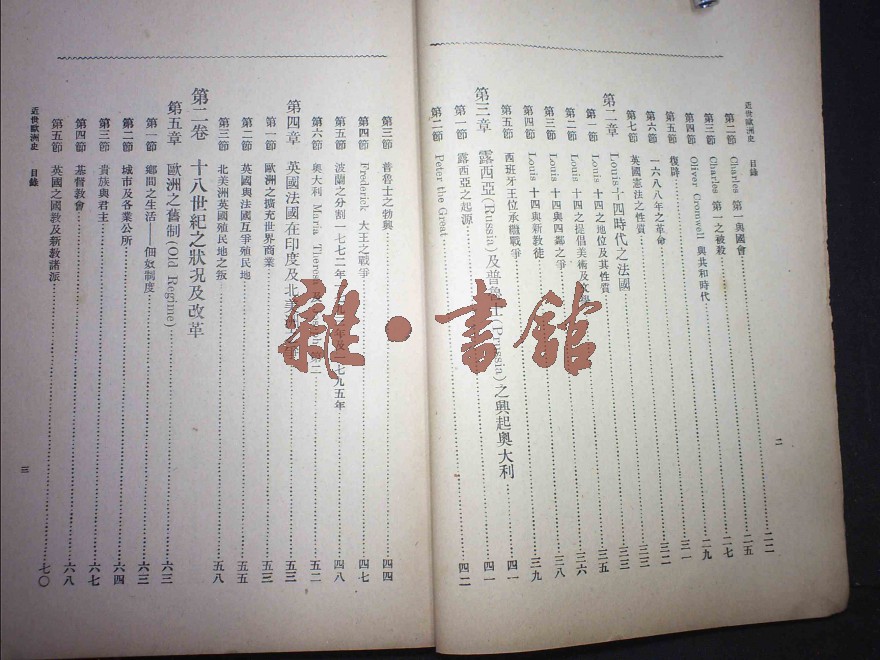 近世歐洲史 目錄
二
第二節 Charles 第一與國會 二二
第三節 Charles 第一之被殺 二五
第四節 Oliver Cromwell 與共和時代 二七
第五節 復辟 二九
第六節 一六八八年之革命 三一
第七節 英國憲法之性質 三二
第二章 Louis十四時代之法國 三三
第一節 Louis 十四之地位及其性質 三三
第二節 Louis 十四之提倡美術及文學 三五
第三節 Louis 十四與四鄰之爭 三六
第四節 Louis 十四與新教徒 三八
第五節 西班牙王位承繼戰爭 三九
第三章 露西亞(Russia)及普魯士(Prussia)之興起奧大利 四一
第一節 露西亞之起源 四一
第二節 Peter the Great 四二
第三節 普魯士之勃興 四四
第四節 Frederick 大王之戰爭 四七
第五節 波蘭之分割一七七二年 年及一七九五年 四八
第六節 奧大利 Maria Theresa 五二
第四章 英國法國在印度及北美洲之爭 五三
第一節 歐洲之擴充世界商業 五三
第二節 英國與法國互爭殖民地 五五
第三節 北美洲英國殖民地之叛 五八
第二卷 十八世紀之狀況及改革
第五章 歐洲之舊制(Old Regime) 六三
第一節 鄉間之生活——佃奴制度 六三
第二節 城市及各業公所 六四
第三節 貴族與君主 六七
第四節 基督教會 六八
第五節 英國之國教及新教諸派 七〇
近世歐洲史 目錄
三
雜·書館